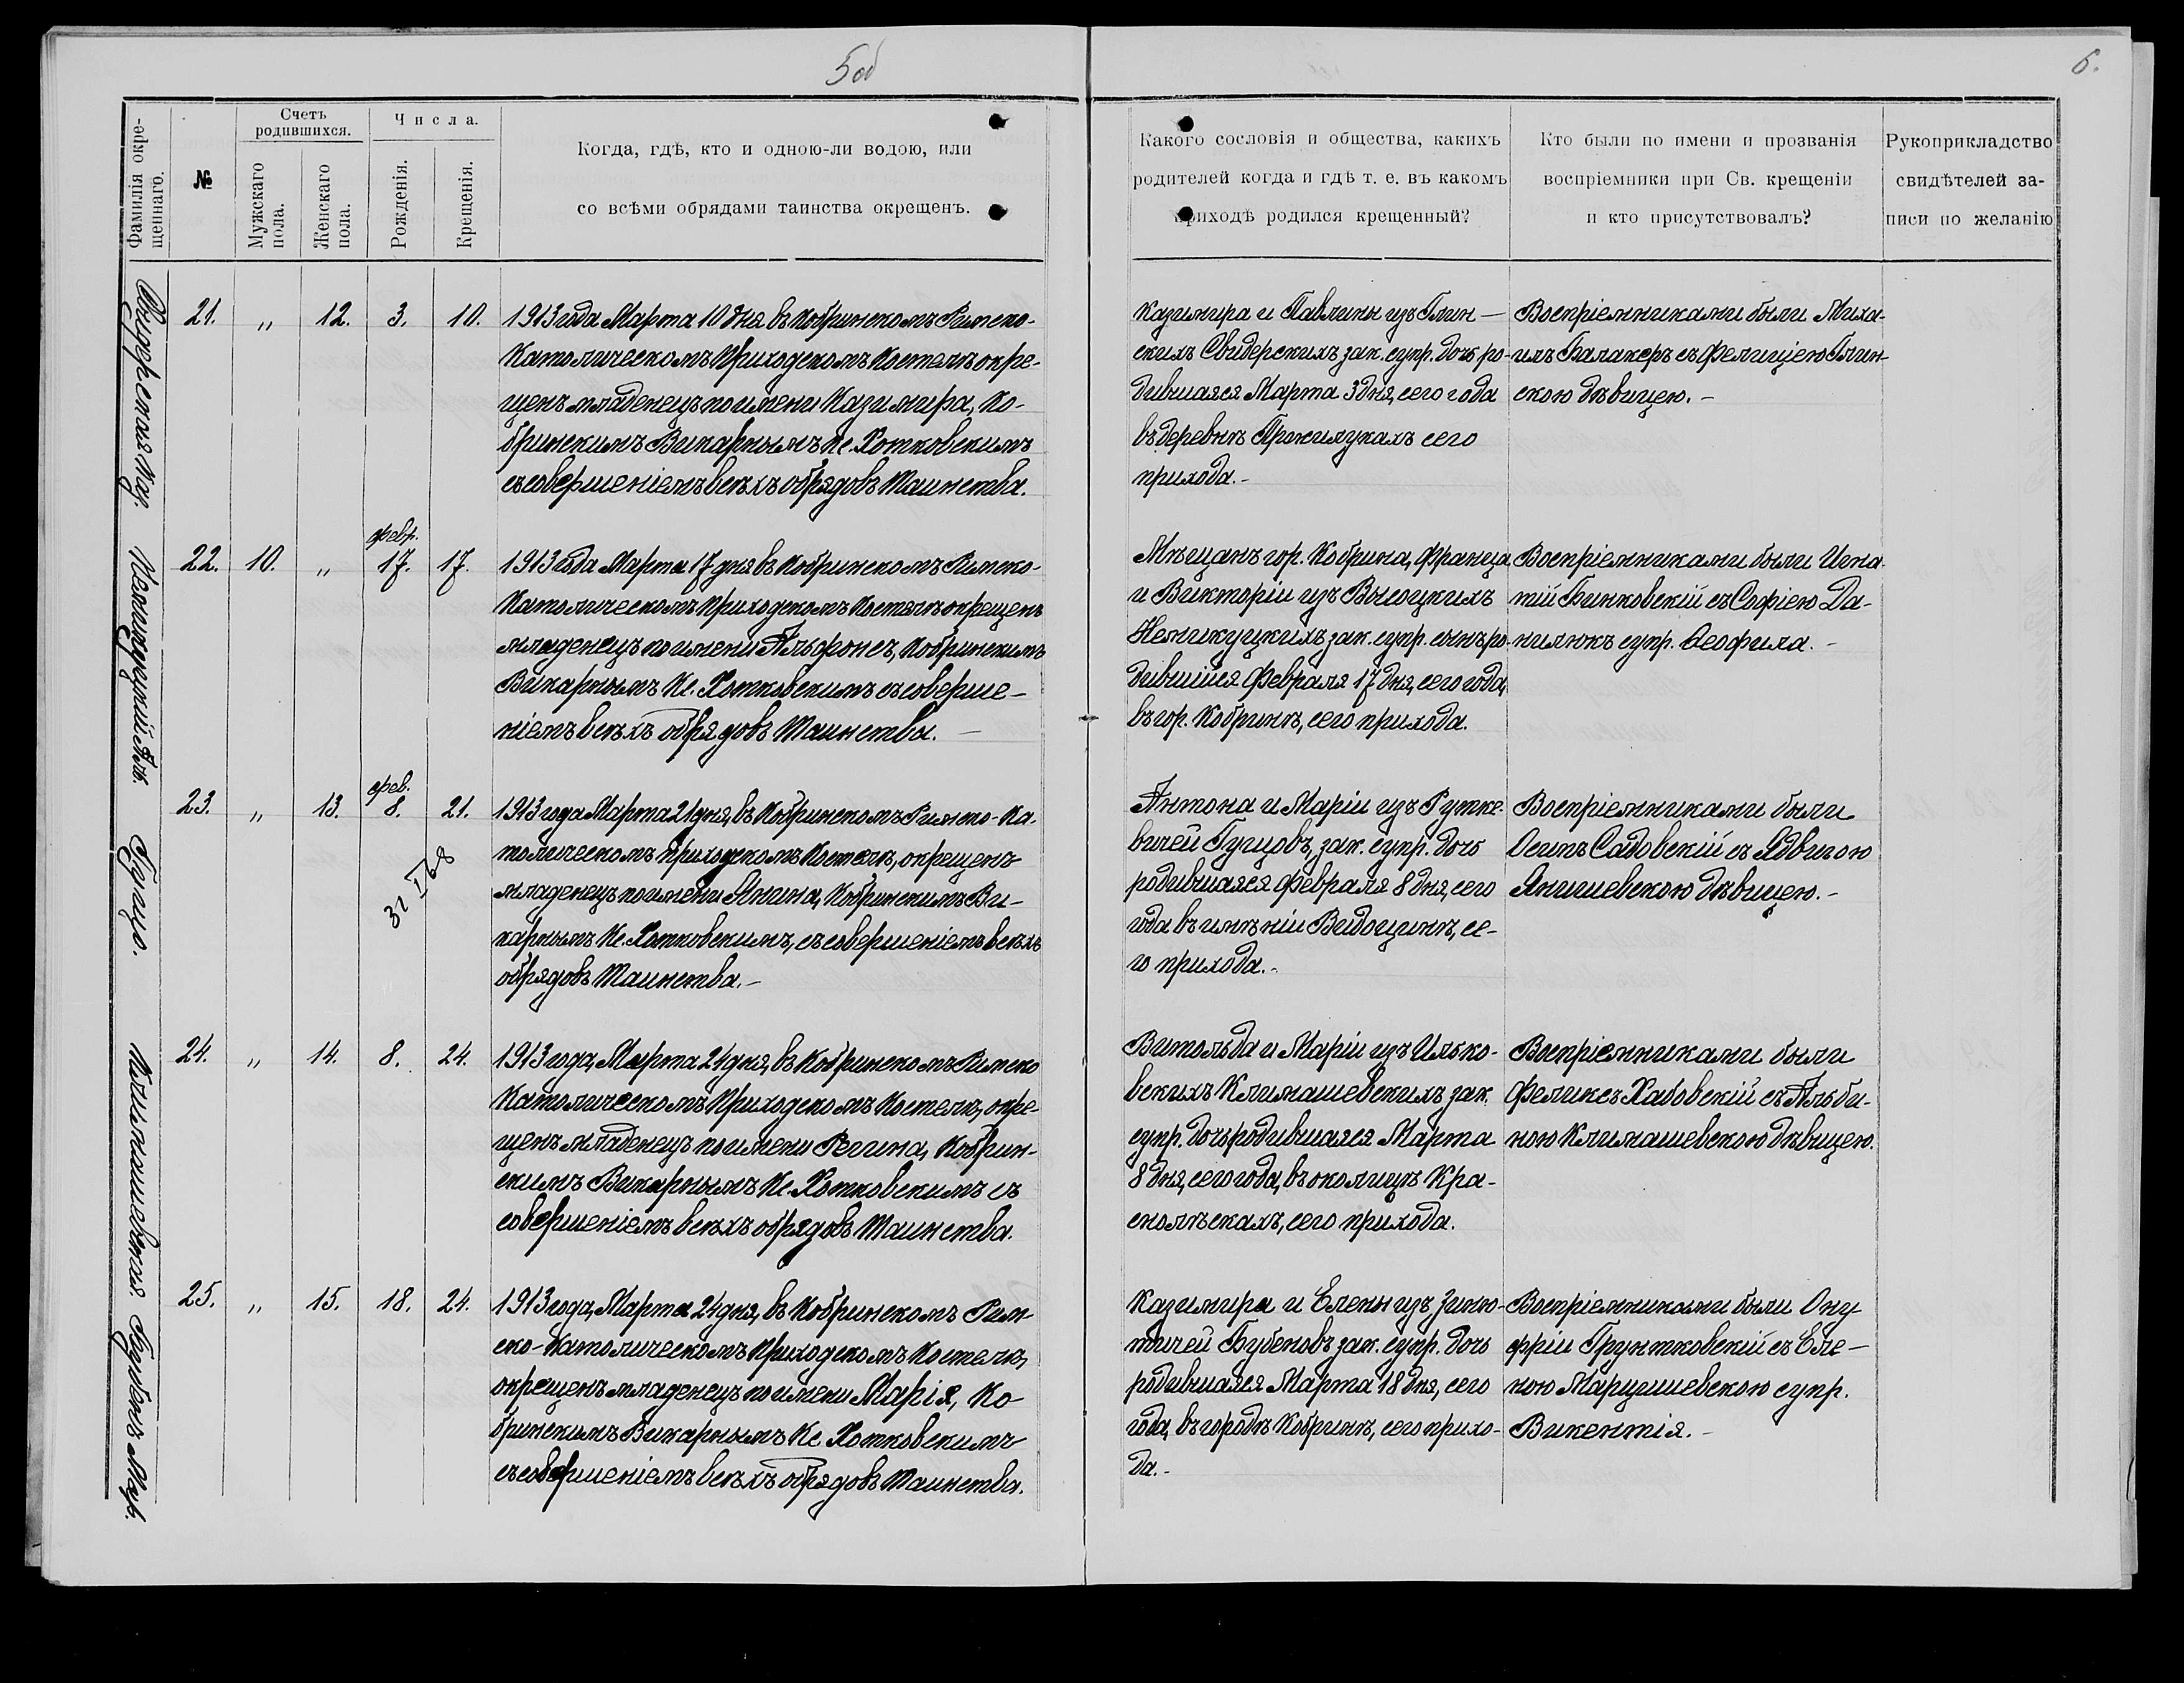 5об
6.
Фамилія окре-
щеннаго.
№
Счетъ
родившихся.
Мужскаго
пола.
Женскаго
пола.
Числа.
Рожденія.
Крещенія.
Когда, гдѣ, кто и одною-ли водою, или
со всѣми обрядами таинства окрещенъ.
Какого сословія и общества, какихъ
родителей когда и гдѣ т. е. въ какомъ
приходѣ родился крещенный?
Кто были по имени и прозванія
воспріемники при Св. крещеніи
и кто присутствовалъ?
Рукоприкладство
свидѣтелей за-
писи по желанію
21. „ 12. 3. 10.
1913 года Марта 10 дня въ Кобринскомъ Римско-
Католическомъ Приходскомъ Костелѣ окре-
щенъ младенецъ по имени Казимира, Ко-
бринскимъ Викарнымъ Кс. Хотковскимъ
съ совершеніемъ всѣхъ обрядовъ Таинства.
Казимира и Павлины изъ Глин-
скихъ Свидерскихъ зак. супр. дочь ро-
дившаяся Марта 3 дня, сего года
въ деревнѣ Прокилукахъ сего
прихода.-
Воспріемниками были Миха-
илъ Балакеръ съ Фелиціею Глин-
скою дѣвицею.-
Немикуцкій Алф.
22. 10. „ февр. 17. 17.
1913 года Марта 17 дня въ Кобринскомъ Римско-
Католическомъ Приходскомъ Костелѣ окрещенъ
младенецъ по имени Альфонсъ, Кобринскимъ
Викарнымъ Кс. Хотковскимъ съ соверше-
ніемъ всѣхъ обрядовъ Таинства. -
Мѣщанъ гор. Кобрина, Франца
и Викторіи изъ Высоцкихъ
Немикуцкихъ зак. супр. сынъ ро-
дившійся Февраля 17 дня, сего года,
въ гор. Кобринѣ, сего прихода.
Воспріемниками были Игна-
тій Бинковскій съ Софіею Да-
нилюкъ супр. Ѳеофила.-
Гуцъ Ю.
23. „ 13. фев. 8. 21.
1913 года Марта 21 дня, въ Кобринскомъ Римско-Ка-
толическомъ приходскомъ Костелѣ, окрещенъ
младенецъ по имени Янина, Кобринскимъ Ви-
карнымъ Кс. Хотковскимъ, съ совершеніемъ всѣхъ
обрядовъ Таинства.-
Антона и Маріи изъ Рутке-
вичей Гуцовъ, зак. супр. дочь
родившаяся Февраля 8 дня, сего
года въ имѣніи Видощинѣ, се-
го прихода.-
Воспріемниками были
Осипъ Садовскій съ Ядвигою
Янишевскою дѣвицею.-
Климашевская
24. „ 14. 8. 24.
1913 года, Марта 24 дня, въ Кобринскомъ Римско
Католическомъ Приходскомъ Костелѣ, окре-
щенъ младенецъ по имени Регина, Кобрин-
скимъ Викарнымъ Кс. Хотковскимъ съ
совершеніемъ всѣхъ обрядовъ Таинства.
Витольда и Маріи изъ Илько-
вскихъ Климашевскихъ зак.
супр. дочь родившаяся Марта
8 дня, сего года, въ околицѣ Кра-
снолѣскахъ, сего прихода.
Воспріемниками были
Феликсъ Хадовскій съ Альби-
ною Климашевскою дѣвицею.
Бубенъ Мар.
25. „ 15. 18. 24.
1913 года, Марта 24 дня, въ Кобринскомъ Рим-
ско-Католическомъ Приходскомъ Костелѣ,
окрещенъ младенецъ по имени Марія, Ко-
бринскимъ Викарнымъ Кс Хотковскимъ
съ совершеніемъ всѣхъ обрядовъ Таинства.
Казимира и Елены изъ Зиню-
тичей Бубеновъ зак. супр. дочь
родившаяся Марта 18 дня, сего
года, въ городѣ Кобринѣ, сего прихо-
да.-
Воспріемниками были Ону
фрій Грунтковскій съ Еле-
ною Марцишевскою супр.
Викентія.-